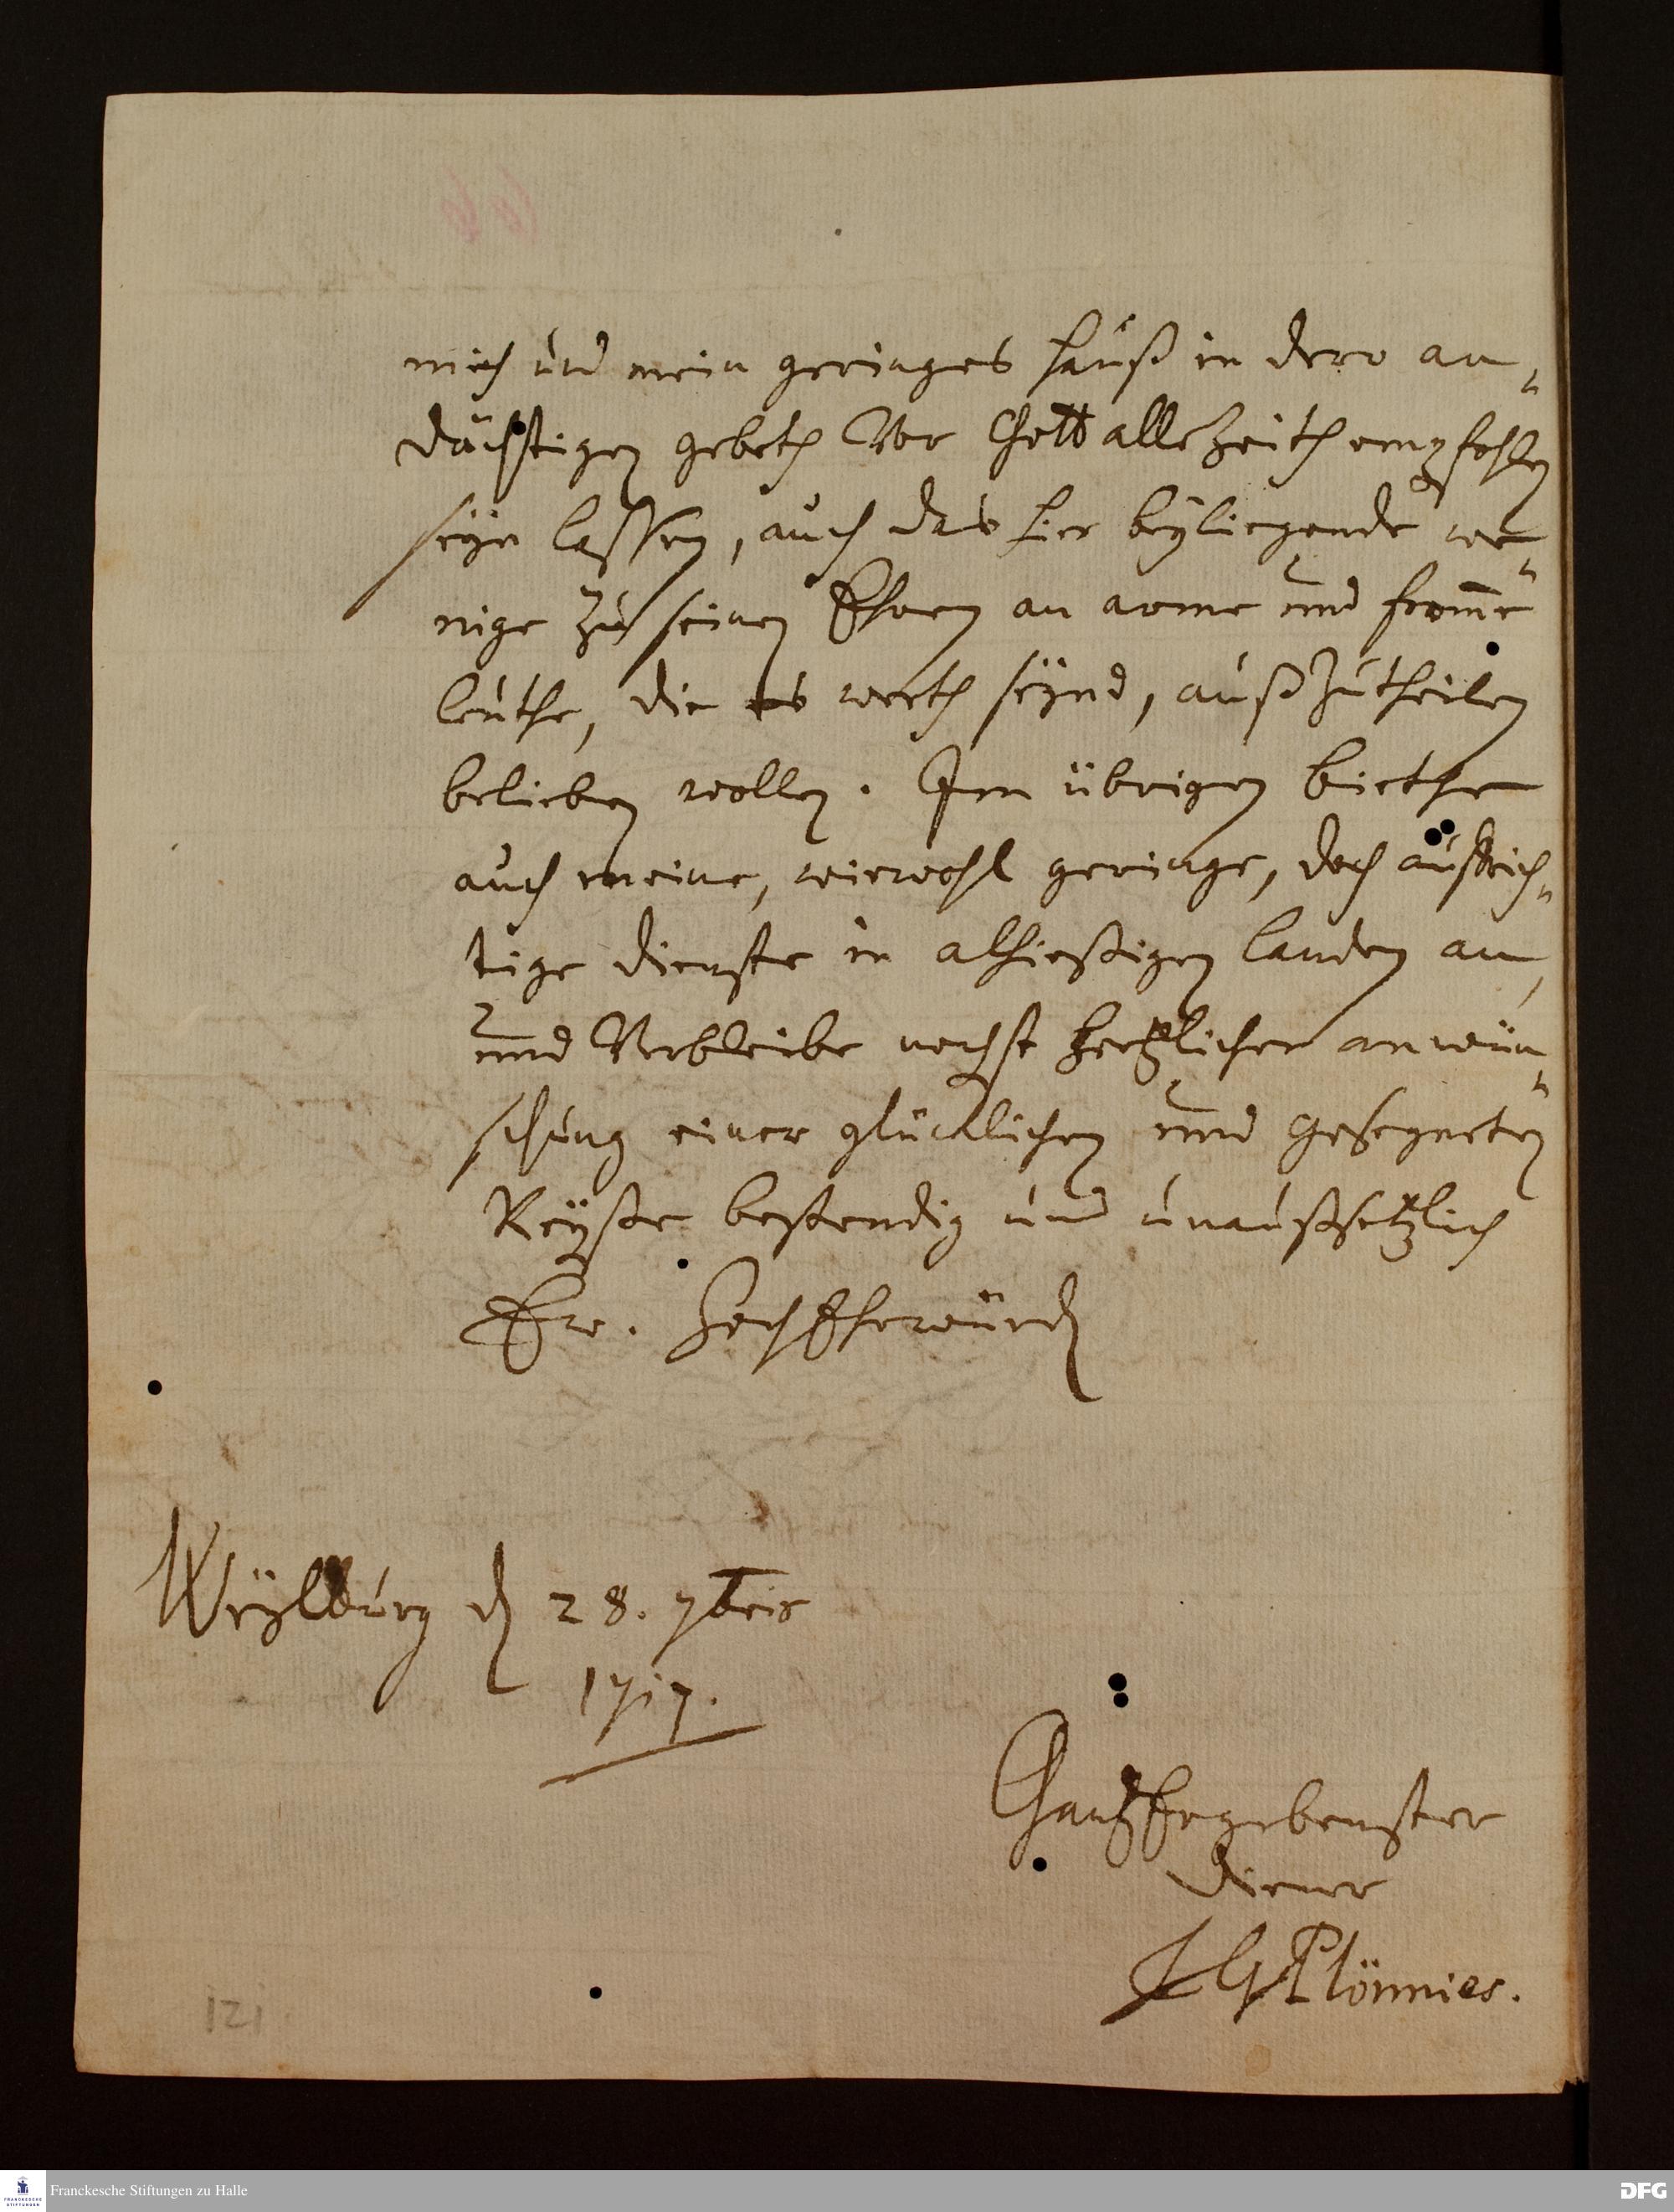 mich und mein geringes hauß in dero an„
dächtigen gebeth Vor Gott allezeith empfohlen
seÿn lassen, auch das hier beÿliegende we„
nige zu seinen Ehren an arme und from̃e
leuthe, die es werth seÿnd, außzutheilen
belieben wollen. Im übrigen biethe
auch meine, wiewohl geringe, doch auffrich„
tige dienste in alhießigen landen an,
und Verbleibe nechst hertzlicher anwün„
schung einer glücklichen und gesegneten
Reÿße bestendig und unaußsetzlich
Ew. HochEhrwürd
Weÿlburg d 28. 7bris
1717.
GantzErgebenster
diener
Plönnies.
121
Franckesche Stiftungen zu Halle
FRANCKESCHE STIFTUNGEN
DFG